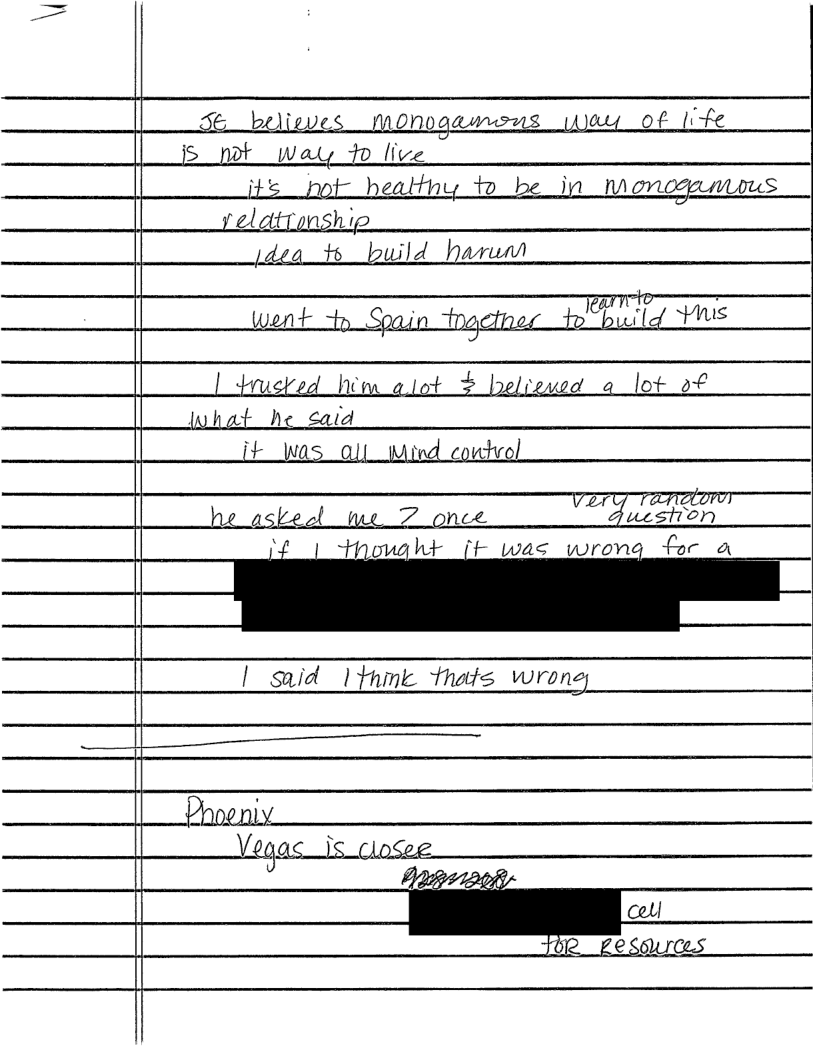 JE believes monogamous way of life
is not way to live
it's not healthy to be in monogamous
relationship
idea to build harum
learn to
went to Spain together to build this
I trusted him alot & believed a lot of
what he said
it was all mind control
very random
he asked me ? once question
if I thought it was wrong for a
I said I think thats wrong
Phoenix
Vegas is closer
cell
for resources